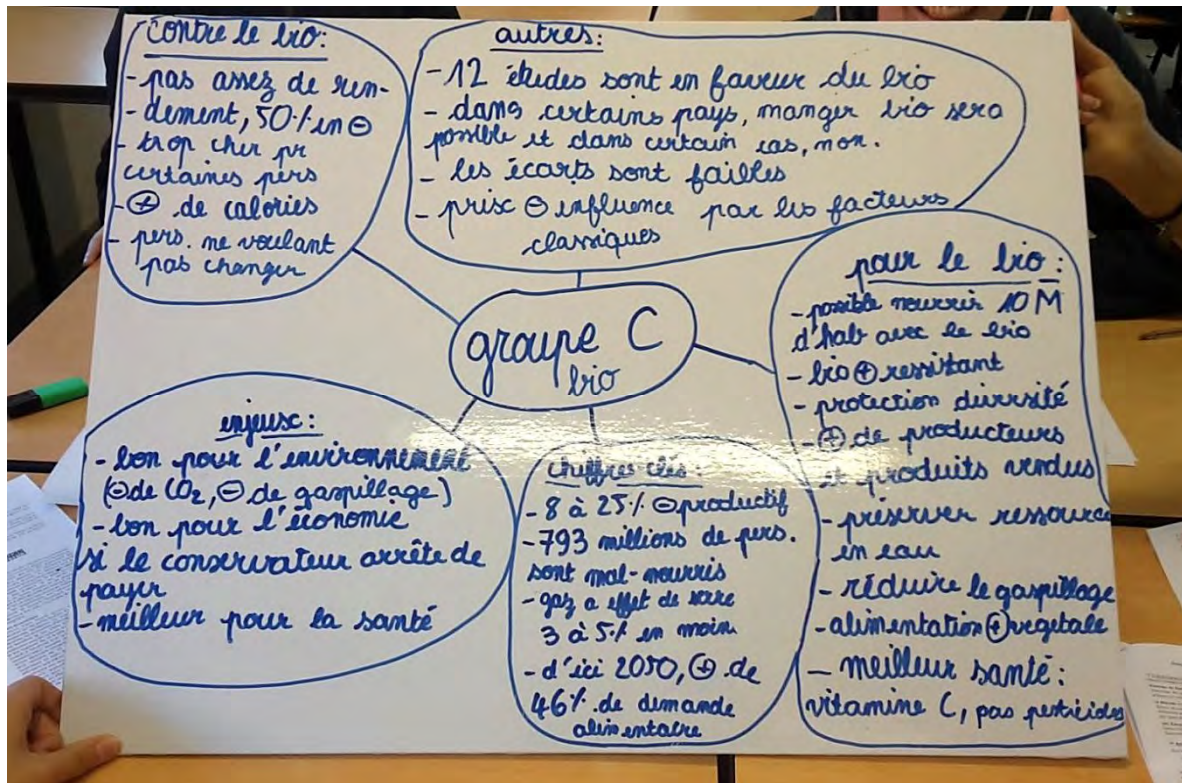 contre le bio:
- pas assez de ren-
- dement, 50% en ⊖
- trop cher pr
certaines pers
- ⊕ de calories
- pers. ne voulant
pas changer
autres:
- 12 études sont en faveur du bio
- dans certains pays, manger bio sera
possible et dans certain cas, non.
- les écarts sont failles
- prisc ⊖ influence par les facteurs
classiques
groupe C
bio
pour le bio:
- possible nourrir 10 M
d'hab avec le bio
- bio ⊕ ressistant
- protection diversité
- ⊕ de producteurs
et produits vendus
- préserver ressource
en eau
- réduire le gaspillage
- alimentation ⊕ vegetale
- meilleur santé:
vitamine C, pas pesticides
enjeux:
- bon pour l'environnement
(⊖ de CO2, ⊖ de gaspillage)
- bon pour l'économie
si le conservateur arrête de
payer
- meilleur pour la santé
chiffres clés:
- 8 à 25% ⊖ productif
- 793 millions de pers.
sont mal-nourris
- gaz a effet de serre
3 à 5% en moin
- d'ici 2050, ⊕ de
46% de demande
alimentaire